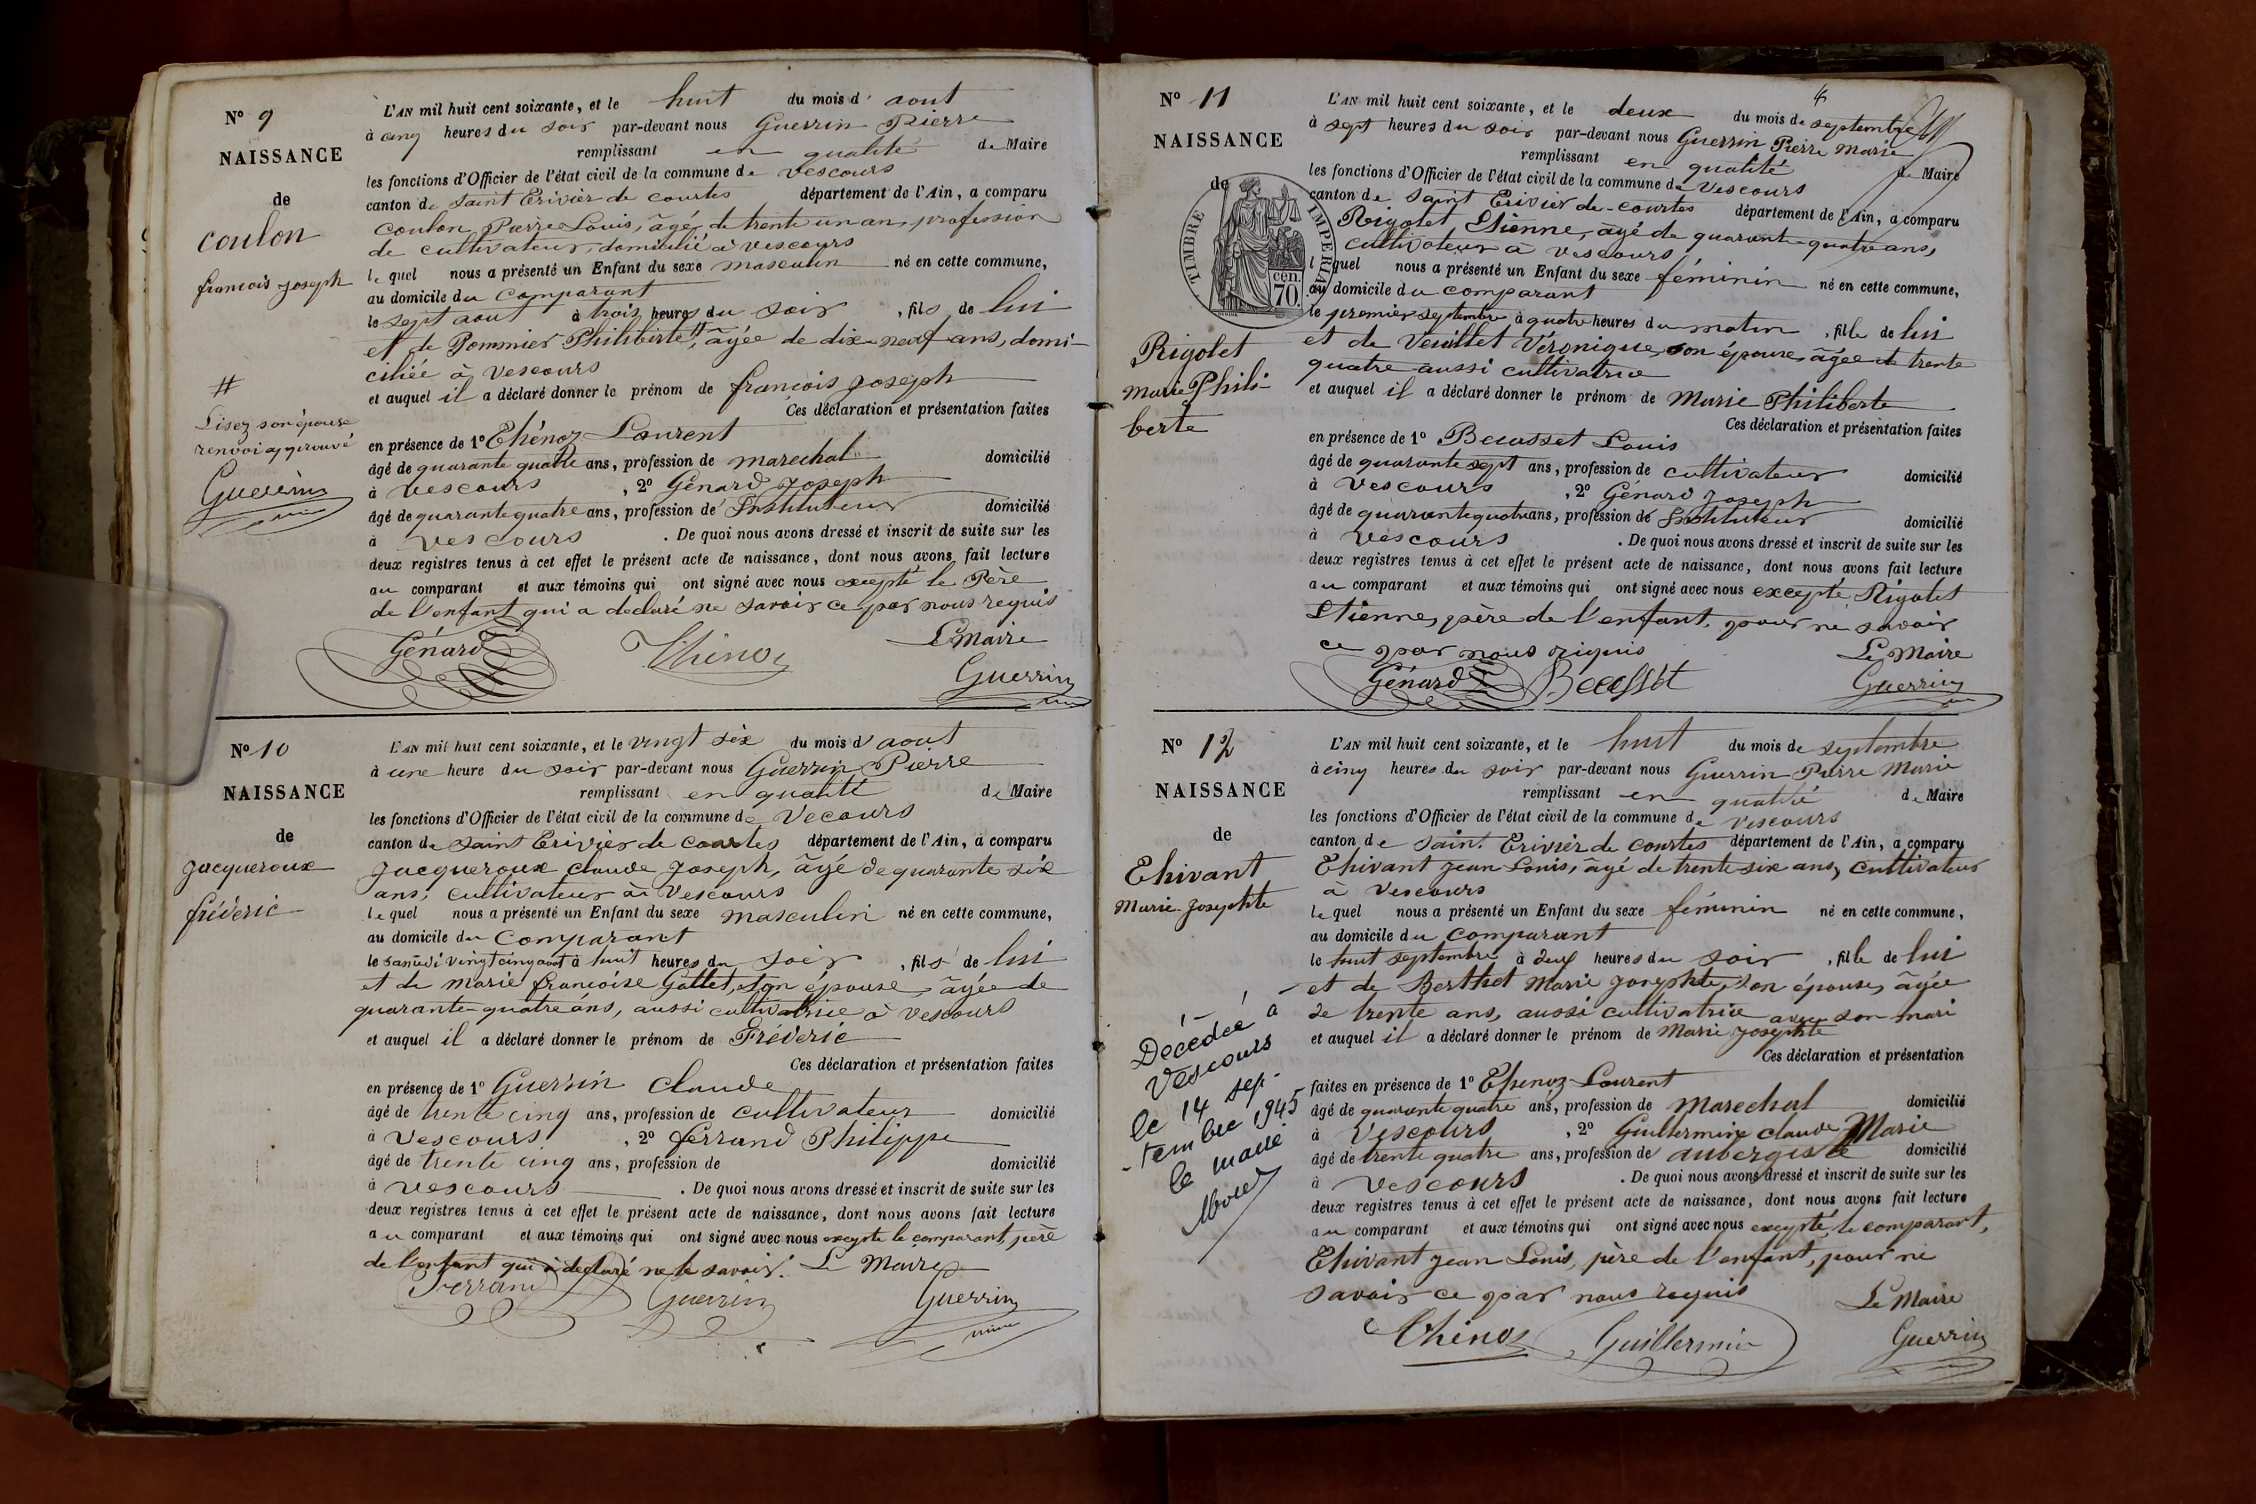 N° 9
NAISSANCE
de
Coulon
françois Joseph
#
Lisez son épouse
renvoi approuvé
Guerrin
L'AN mil huit cent soixante, et le huit du mois d'aout
à cinq heures du soir par-devant nous Guerrin Pierre
remplissant en qualité de Maire
les fonctions d'Officier de l'état civil de la commune de Vescours
canton de Saint Trivier de Courtes département de l'Ain, a comparu
Coulon Pierre Louis, âgé de trente un an, profession
de cultivateur, domicilié à Vescours
le quel nous a présenté un Enfant du sexe masculin né en cette commune,
au domicile du Comparant
le sept aout à trois heures du soir, fils de lui
et de Pommier Philiberte, # âgée de dix-neuf ans, domi-
ciliée à Vescours
et auquel il a déclaré donner le prénom de françois Joseph
Ces déclaration et présentation faites
en présence de 1° Thénoz Laurent
âgé de quarante quatre ans, profession de marechal domicilié
à Vescours, 2° Génard Joseph
âgé de quarante quatre ans, profession de Instituteur domicilié
à Vescours. De quoi nous avons dressé et inscrit de suite sur les
deux registres tenus à cet effet le présent acte de naissance, dont nous avons fait lecture
au comparant et aux témoins qui ont signé avec nous excepté le Père
de l'enfant qui a declaré ne savoir ce par nous requis
Le Maire
Génard Thénoz Guerrin
N° 10
NAISSANCE
de
Jacqueroux
fréderic
L'AN mil huit cent soixante, et le vingt six du mois d'aout
à une heure du soir par-devant nous Guerrin Pierre
remplissant en qualité de Maire
les fonctions d'Officier de l'état civil de la commune de Vecours
canton de Saint Trivier de Courtes département de l'Ain, a comparu
Jacqueroux Claude Joseph, âgé de quarante six
ans, cultivateur à Vescours
le quel nous a présenté un Enfant du sexe masculin né en cette commune,
au domicile du Comparant
le samedi vingt cinq aout à huit heures du soir, fils de lui
et de Marie françoise Gallet, son épouse, âgée de
quarante-quatre ans, aussi cultivatrice à Vescours
et auquel il a déclaré donner le prénom de Fréderic
Ces déclaration et présentation faites
en présence de 1° Guerrin Claude
âgé de trente cinq ans, profession de cultivateur domicilié
à Vescours, 2° ferrand Philippe
âgé de trente cinq ans, profession de domicilié
à Vescours. De quoi nous avons dressé et inscrit de suite sur les
deux registres tenus à cet effet le présent acte de naissance, dont nous avons fait lecture
au comparant et aux témoins qui ont signé avec nous excepté le comparant, père
de l'enfant qui a declaré ne le savoir. Le Maire
Ferrand Guerrin Guerrin
N° 11
NAISSANCE
de
TIMBRE IMPERIAL
cen.
70.
Rigolet
Marie Phili-
berte
L'AN mil huit cent soixante, et le deux du mois de septembre
à sept heures du soir par-devant nous Guerrin Pierre Marie
remplissant en qualité de Maire
les fonctions d'Officier de l'état civil de la commune de Vescours
canton de Saint Trivier-de-Courtes département de l'Ain, a comparu
Rigolet Etienne, âgé de quarante-quatre ans,
cultivateur à Vescours
lequel nous a présenté un Enfant du sexe féminin né en cette commune,
au domicile du comparant
le premier septembre à quatre heures du matin, fille de lui
et de Veuillet Véronique, son épouse, âgée de trente
quatre aussi cultivatrice
et auquel il a déclaré donner le prénom de Marie Philiberte
Ces déclaration et présentation faites
en présence de 1° Beausset Louis
âgé de quarante sept ans, profession de cultivateur domicilié
à Vescours, 2° Génard Joseph
âgé de quarante quatre ans, profession de Instituteur domicilié
à Vescours. De quoi nous avons dressé et inscrit de suite sur les
deux registres tenus à cet effet le présent acte de naissance, dont nous avons fait lecture
au comparant et aux témoins qui ont signé avec nous excepté Rigolet
Etienne, père de l'enfant, pour ne savoir
ce par nous requis Le Maire
Génard Beausset Guerrin
N° 12
NAISSANCE
de
Thivant
Marie-Josephte
Décédée à
Vescours
le 14 sep-
tembre 1945
le maire
L'AN mil huit cent soixante, et le huit du mois de septembre
à cinq heures du soir par-devant nous Guerrin Pierre Marie
remplissant en qualité de Maire
les fonctions d'Officier de l'état civil de la commune de Vescours
canton de Saint Trivier de Courtes département de l'Ain, a comparu
Thivant Jean Louis, âgé de trente six ans, cultivateur
à Vescours
le quel nous a présenté un Enfant du sexe féminin né en cette commune,
au domicile du comparant
le huit septembre à deux heures du soir, fille de lui
et de Berthet Marie Josephte, son épouse, âgée
de trente ans, aussi cultivatrice avec son mari
et auquel il a déclaré donner le prénom de Marie Josephte
Ces déclaration et présentation
faites en présence de 1° Thenoz Laurent
âgé de quarante quatre ans, profession de marechal domicilié
à Vescours, 2° Guillermin Claude Marie
âgé de trente quatre ans, profession de aubergiste domicilié
à Vescours. De quoi nous avons dressé et inscrit de suite sur les
deux registres tenus à cet effet le présent acte de naissance, dont nous avons fait lecture
au comparant et aux témoins qui ont signé avec nous excepté le comparant,
Thivant Jean Louis, père de l'enfant, pour ne
savoir ce par nous requis Le Maire
Thénoz Guillermin Guerrin